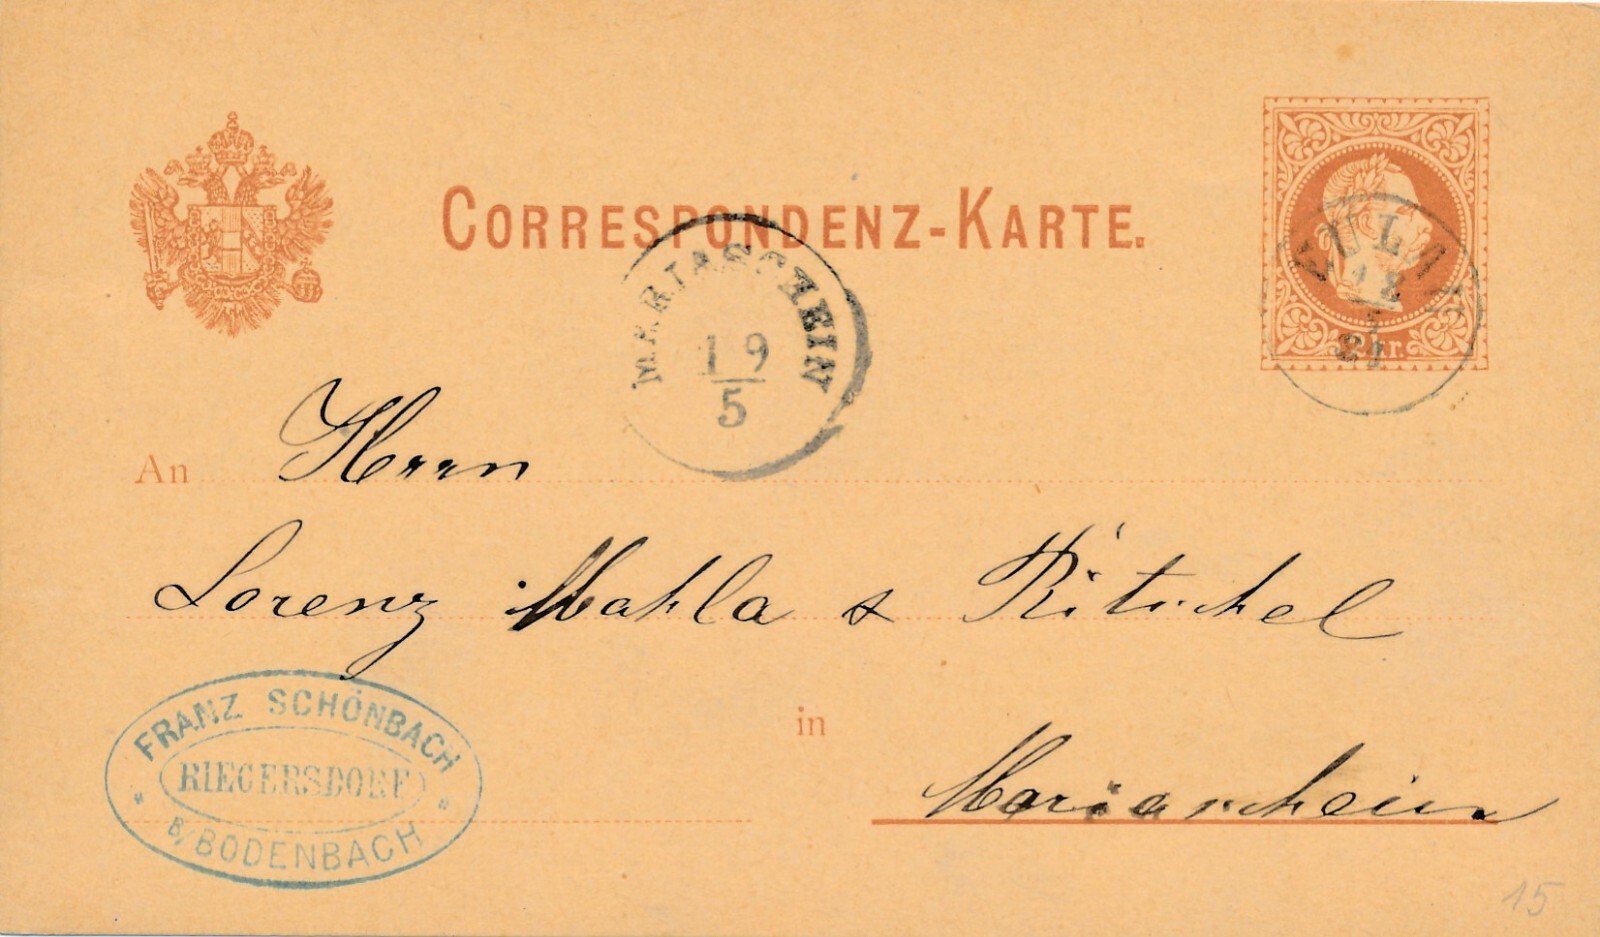 CORRESPONDENZ-KARTE.
MARIASCHEIN
19
5
EULAU
18
5
81
2 kr.
An Herrn
Lorenz Mahla & Ritschel
in
Mariaschein
FRANZ SCHÖNBACH
RIEGERSDORF
B/BODENBACH
15